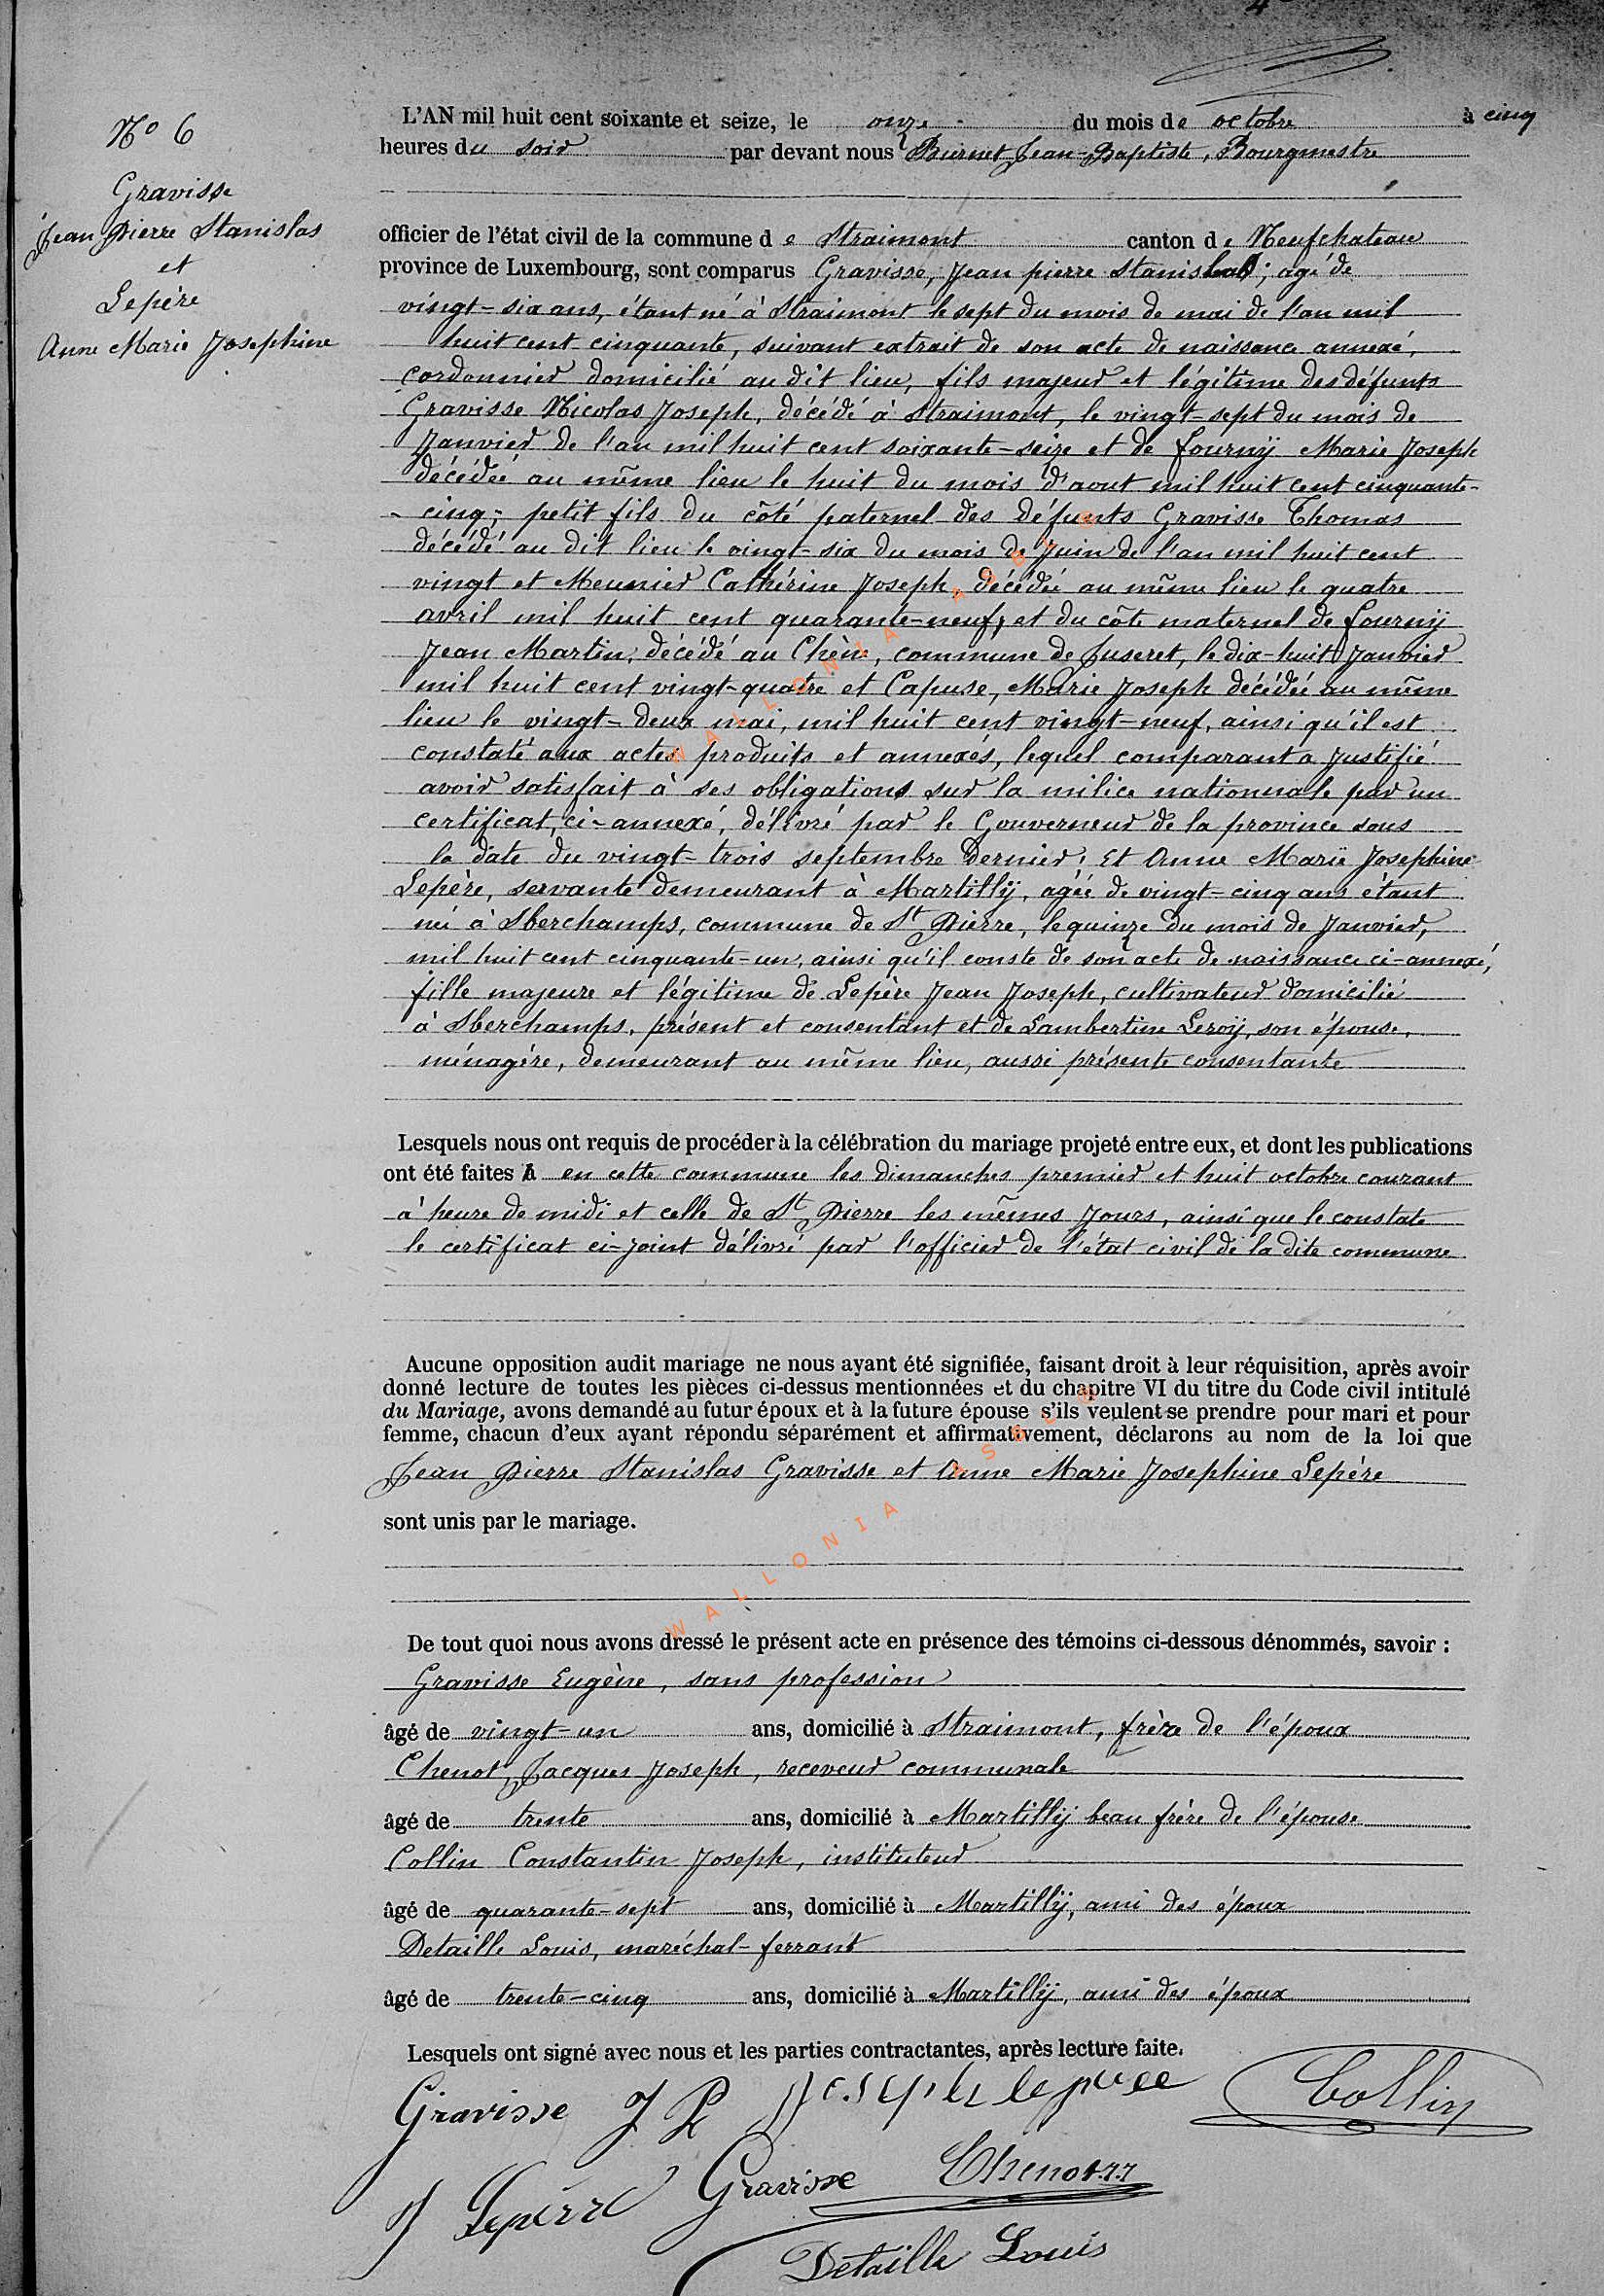 N° 6
Gravisse
Jean Pierre Stanislas
et
Lepère
Anne Marie Josephine
L'AN mil huit cent soixante et seize, le onze du mois de octobre à cinq
heures du soir par devant nous Burnet Jean-Baptiste, Bourgmestre
officier de l'état civil de la commune de Straimont canton de Neufchateau
province de Luxembourg, sont comparus Gravisse, Jean pierre Stanislas; agé de
vingt-six ans, étant né à Straimont le sept du mois de mai de l'an mil
huit cent cinquante, suivant extrait de son acte de naissance annexé,
cordonnier domicilié au dit lieu, fils majeur et légitime des défunts
Gravisse Nicolas Joseph, décédé à Straimont, le vingt-sept du mois de
Janvier de l'an mil huit cent soixante-seize et de Fournÿ Marie Joseph
décédée au même lieu le huit du mois d'aout mil huit cent cinquante-
cinq; petit fils du côté paternel des défunts Gravisse Thomas
décédé au dit lieu le vingt-six du mois de Juin de l'an mil huit cent
vingt et Meunier Cathérine Joseph, décédée au même lieu le quatre
avril mil huit cent quarante-neuf, et du côté maternel de Fournÿ
Jean Martin, décédé au Chêne, commune de Juseret, le dix-huit Janvier
mil huit cent vingt-quatre et Capuse, Marie Joseph décédée au même
lieu le vingt-deux mai, mil huit cent vingt-neuf, ainsi qu'il est
constaté aux actes produits et annexés, lequel comparant a Justifié
avoir satisfait à ses obligations sur la milice nationnale par un
certificat, ci-annexé, délivré par le Gouverneur de la province sous
la date du vingt-trois septembre dernier; Et Anne Marie Josephine
Lepère, servante demeurant à Martillÿ, agée de vingt-cinq ans étant
né à Sberchamps, commune de St Pierre, le quinze du mois de Janvier,
mil huit cent cinquante-un, ainsi qu'il conste de son acte de naissance ci-annexé,
fille majeure et légitime de Lepère Jean Joseph, cultivateur domicilié
à Sberchamps, présent et consentant et de Lambertine Leroÿ, son épouse,
ménagère, demeurant au même lieu, aussi présente consentante
Lesquels nous ont requis de procéder à la célébration du mariage projeté entre eux, et dont les publications
ont été faites en cette commune les dimanches premier et huit octobre courant
à heure de midi et celle de St Pierre les mêmes Jours, ainsi que le constate
le certificat ci-joint délivré par l'officier de l'état civil de la dite commune
Aucune opposition audit mariage ne nous ayant été signifiée, faisant droit à leur réquisition, après avoir
donné lecture de toutes les pièces ci-dessus mentionnées et du chapitre VI du titre du Code civil intitulé
du Mariage, avons demandé au futur époux et à la future épouse s'ils veulent se prendre pour mari et pour
femme, chacun d'eux ayant répondu séparément et affirmativement, déclarons au nom de la loi que
Jean Pierre Stanislas Gravisse et Anne Marie Josephine Lepère
sont unis par le mariage.
De tout quoi nous avons dressé le présent acte en présence des témoins ci-dessous dénommés, savoir :
Gravisse Eugène, sans profession
âgé de vingt-un ans, domicilié à Straimont, frère de l'époux
Chenot, Jacques Joseph, receveur communale
âgé de trente ans, domicilié à Martillÿ beau frère de l'épouse
Collin Constantin Joseph, instituteur
âgé de quarante-sept ans, domicilié à Martillÿ, ami des époux
Detaille Louis, maréchal-ferrant
âgé de trente-cinq ans, domicilié à Martillÿ, ami des époux
Lesquels ont signé avec nous et les parties contractantes, après lecture faite.
Gravisse J P Joseph lepere Collin
J Lepère Gravisse Chenot JJ
Detaille Louis
WALLONIA ASBL ©
WALLONIA ASBL ©